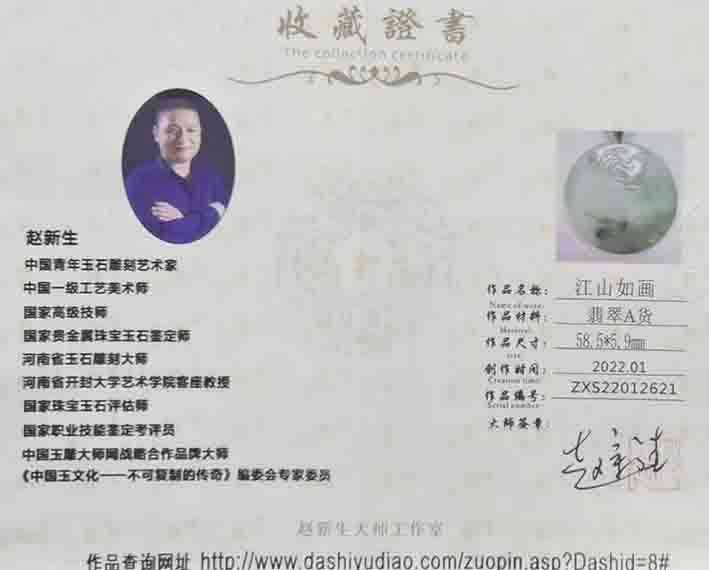 收藏證書
The collection certificate
赵新生
中国青年玉石雕刻艺术家
中国一级工艺美术师
国家高级技师
国家贵金属珠宝玉石鉴定师
河南省玉石雕刻大师
河南省开封大学艺术学院客座教授
国家珠宝玉石评估师
国家职业技能鉴定考评员
中国玉雕大师网战略合作品牌大师
《中国玉文化——不可复制的传奇》编委会专家委员
作品名称： 江山如画
Name of work:
作品材料： 翡翠A货
Material:
作品尺寸： 58.5*5.9mm
size:
创作时间： 2022.01
Creation time:
作品编号： ZXS22012621
Serial number:
大师签章： 赵新生
赵新生大师工作室
作品查询网址 http://www.dashiyudiao.com/zuopin.asp?Dashid=8#